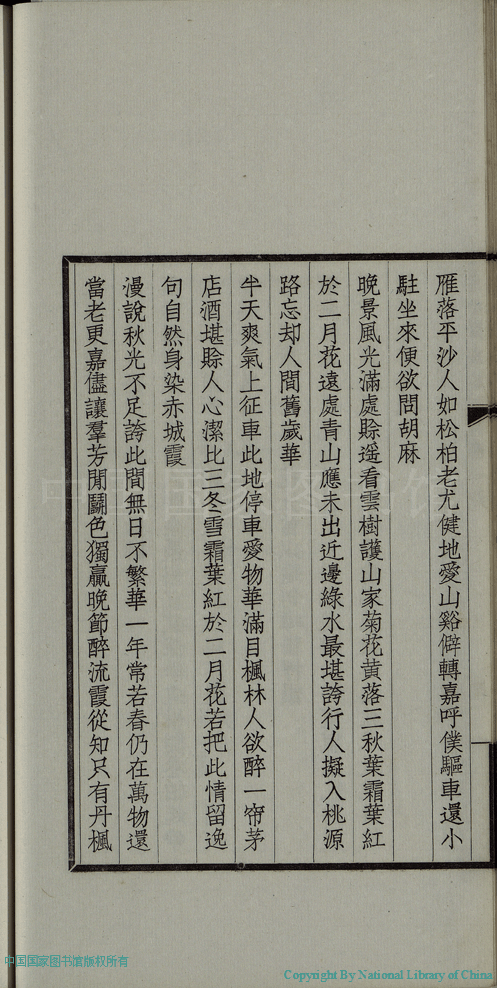 雁落平沙人如松柏老尤健地愛山谿僻轉嘉呼僕驅車還小
駐坐來便欲問胡麻
晚景風光滿處賒遥看雲樹護山家菊花黄落三秋葉霜葉紅
於二月花遠處青山應未出近邊綠水最堪誇行人擬入桃源
路忘却人間舊歲華
半天爽氣上征車此地停車愛物華滿目楓林人欲醉一帘茅
店酒堪賒人心潔比三冬雪霜葉紅於二月花若把此情留逸
句自然身染赤城霞
漫說秋光不足誇此間無日不繁華一年常若春仍在萬物還
當老更嘉儘讓羣芳閒鬭色獨贏晚節醉流霞從知只有丹楓
中国国家图书馆版权所有
Copyright By National Library of China